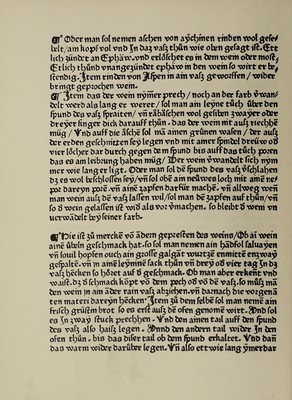 ¶ Oder man sol nemen aschen von aychmen rinden wol gese⸗
belt/ am kopf vol vnd In daz vasz thün wie oben gesagt ist. Ett
lich zündet an Ephäw. vnd erlöschet es in dem wem oder most.
Ettlich thünd vnangezündet ephäw in den wem so wirt er be⸗
stendig. Item rinden von Aspen in am vasz geworffen/ wider
bringt geprochen wem.
¶ Item das der wem nymer prech/ noch an der farb v̈wan⸗
delt werd als lang er weret/ sol man ain leyne tůch über den
spund des vasz spraiten/ vn̄ räbäschen wol gesibet zwayer oder
dreyer finger dick darauff thün. das der wem mit ausz riechen
müg/ Vnd auff die äsche sol mā ainen grünen wasen/ der ausz
der erden geschnitten sey legen vnd mit ainer spindel dreiw oḋ
vier löcher dar durch gegen dem spund bis auff das tůch porn
das es am leibrung haben müg/ Der wem v̈wandelt sich nym
mer wie lang er ligt. Oder man sol dē spund des vasz v̈schlahen
dz es wol beschlossen sey/ vn̄ sol obē ain newens loch mit ainē ne⸗
per dareyn porē. vn̄ ainē zapfen darfür machē. vn̄ allweg weñ
man wein ausz dē vasz lassen wil/ sol man dē zapfen auff thün/ vn̄
so ḋ wein gelassen ist wiḋ als vor v̈machen. so bleibt ḋ wem vn
verwädelt bey seiner farb.
¶ Hie ist zů mercke vō ädem gepresten des weins/ Ob aī wein
ainē übeln geschmack hat. so sol man nemen ain hädfol saluayen
vn̄ souil hopfen ouch ain grosse galgāt wurtzē enmitte entzway
gespalte. vn̄ in ainē leymnē sack thün vn̄ drey oḋ vier tag In dz
vasz hēcken so höret auf ḋ geschmack. Ob man aber erkent vnd
waist. dz ḋ schmack kōpt vō dem pech oḋ vō dē vasz. so můsz mā
den wem in am āder rain vasz abziehen. vn̄ darnach die worgesā
ten materi dareyn hēcken. Item zů dem selbē sol man nemē ain
frisch grüsztm brot so es erst ausz dē ofen genomē wirt. Vnd sol
es In zway stuck prechhen. Vnd den ainen tail auff den spunt
des vasz also haisz legen. Vnnd den andern tail wider In den
ofen thün. bis das diser tail ob dem spund erkaltet. Vnd dan̄
das warm wider darüber legen. Vn̄ also ett wie lang ymerdar